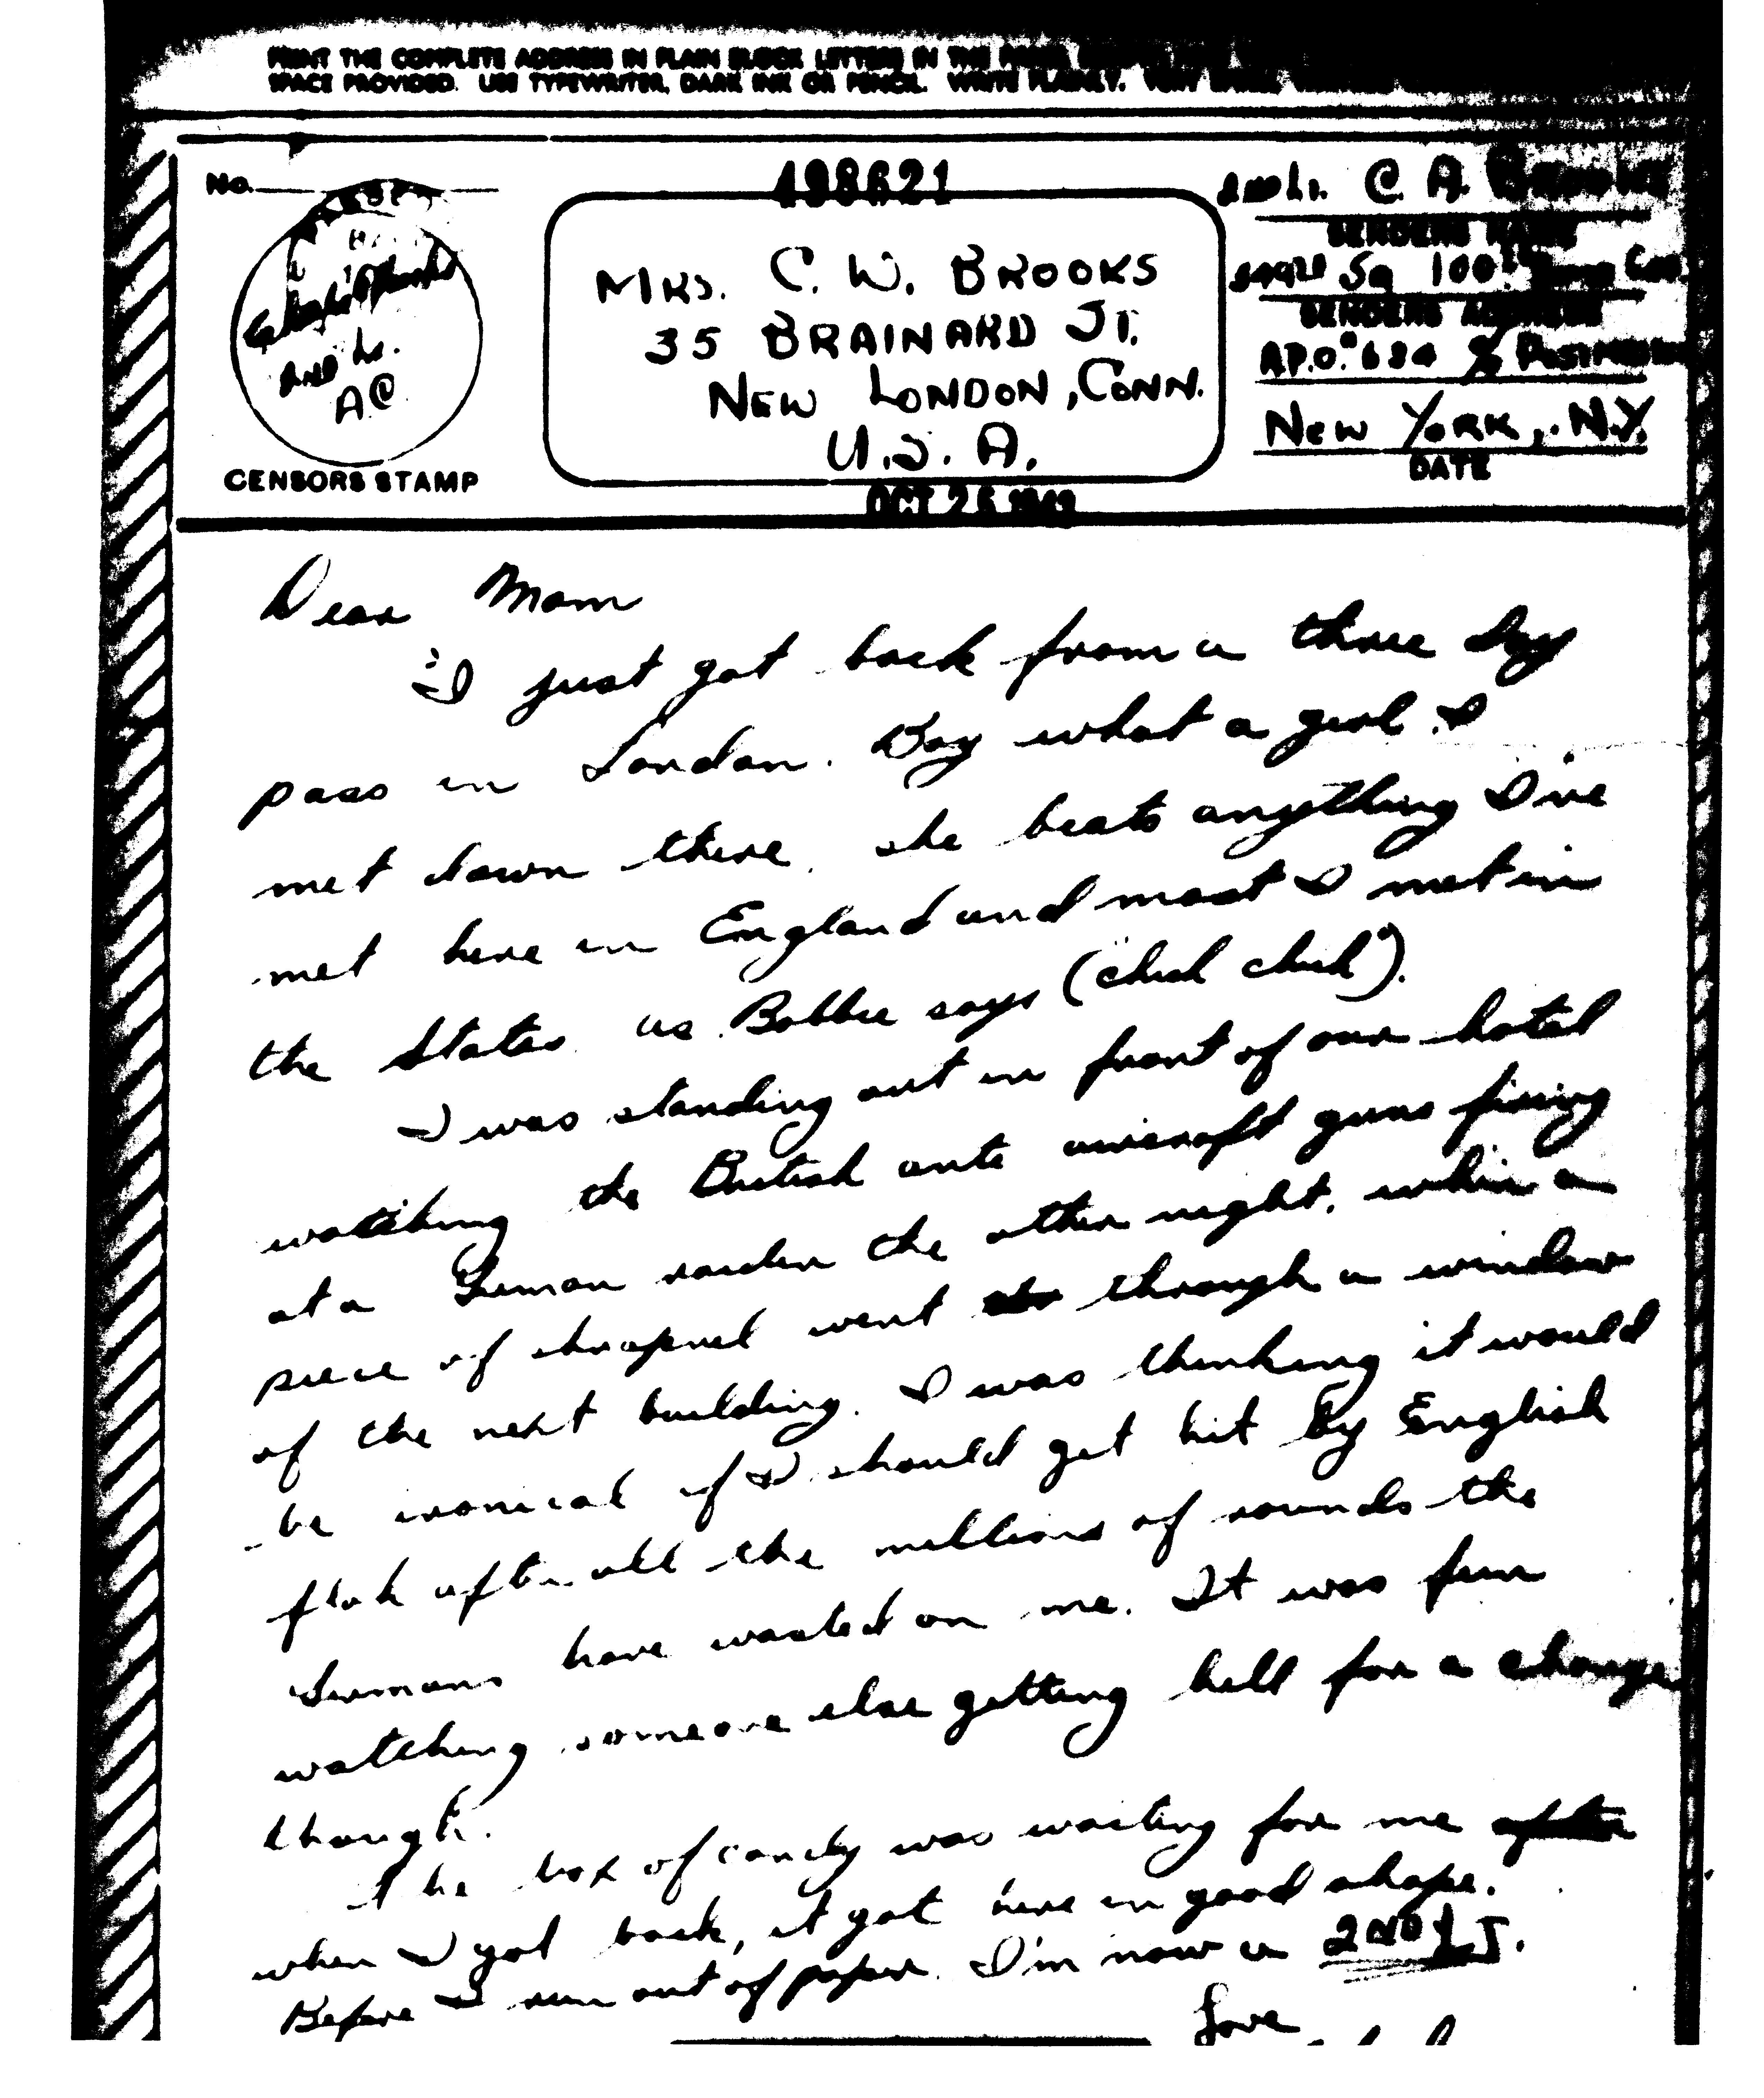 PRINT THE COMPLETE ADDRESS IN PLAIN BLOCK LETTERS IN THE
SPACE PROVIDED. USE TYPEWRITER, DARK INK OR PENCIL. WRITE PLAINLY. VERY SMALL
No.
498621
2nd Lt. C. A. Brooks
SENDERS NAME
MRS. C. W. BROOKS
35 BRAINARD ST.
NEW LONDON, CONN.
U.S.A.
SENDERS ADDRESS
A.P.O. 634 % POSTMASTER
NEW YORK, N.Y.
DATE
2nd Lt.
AC
CENSORS STAMP
OCT 26 1943
Dear Mom
I just got back from a three day
pass in London. Boy what a girl I
met down there, she beats anything I've
met here in England and most I met in
the States as Bobbie says ("chuck chuck").
I was standing out in front of our hotel
watching the British ante aircraft guns firing
at a German raider the other night, when a
piece of shrapnel went through a window
of the next building. I was thinking it would
be ironical if I should get hit by English
flak after all the millions of rounds the
Germans have wasted on me. It was fun
watching someone else getting hell for a change
though.
The box of candy was waiting for me after
when I got back, it got here in good shape.
Before I run out of paper. I'm now a 2ND LT.
Love